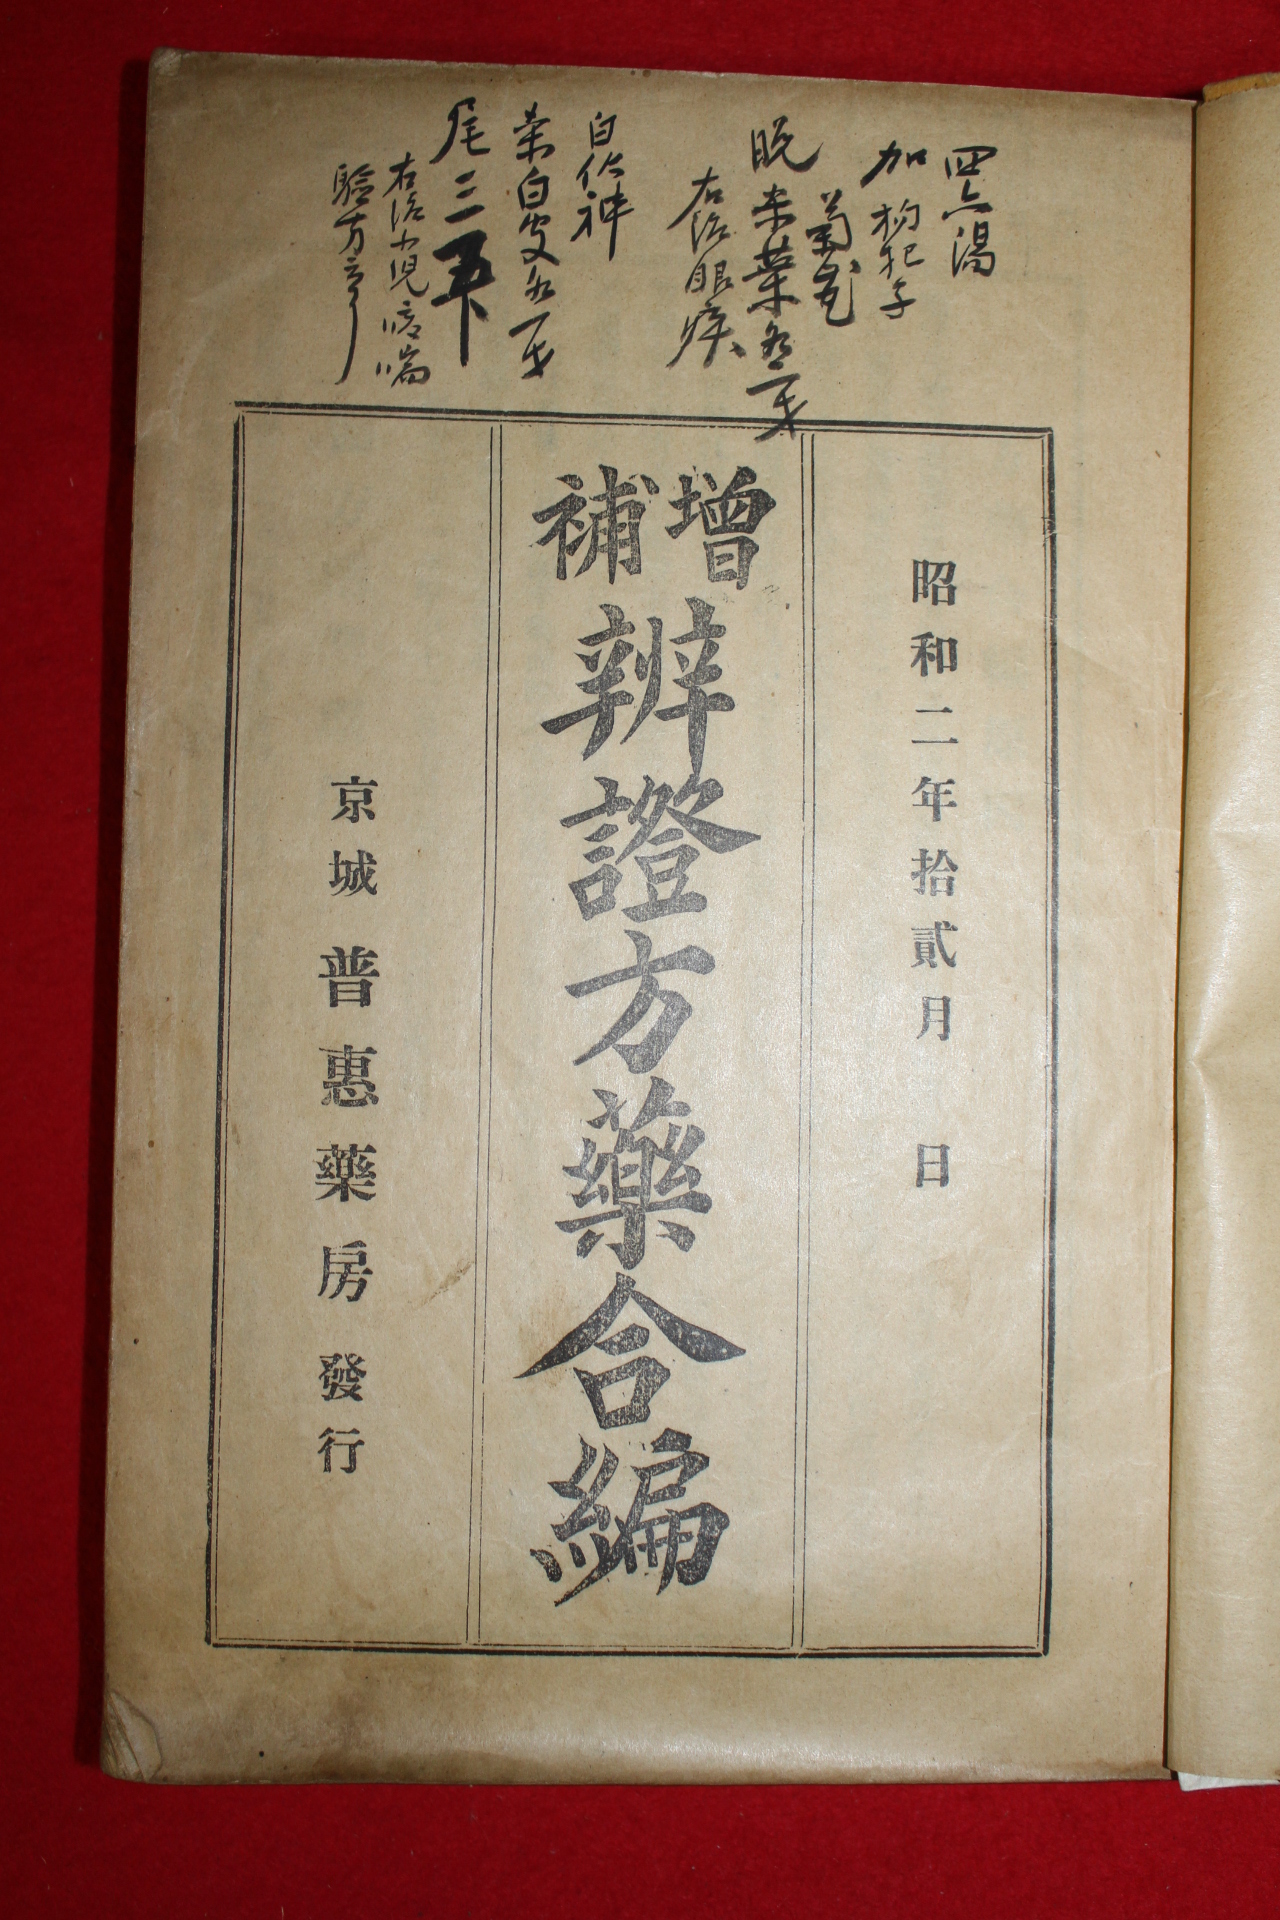 四六湯
加枸杞子
菊花
桑葉各一戔
右治眼疾
白茯神
桑白皮各一戔
尾三下
右治小児咳喘
驗方
昭和二年拾貳月　日
增補
辨證方藥合編
京城普惠藥房發行